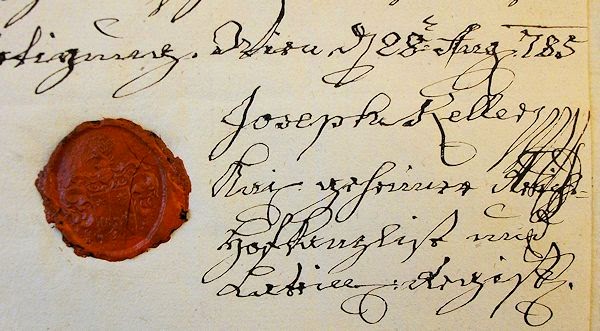 tigung. Wien d 28t Aug. 785
Joseph Keller
Kai. geheimer Reichs-
Hofkanzlist und
Latein. Regist.